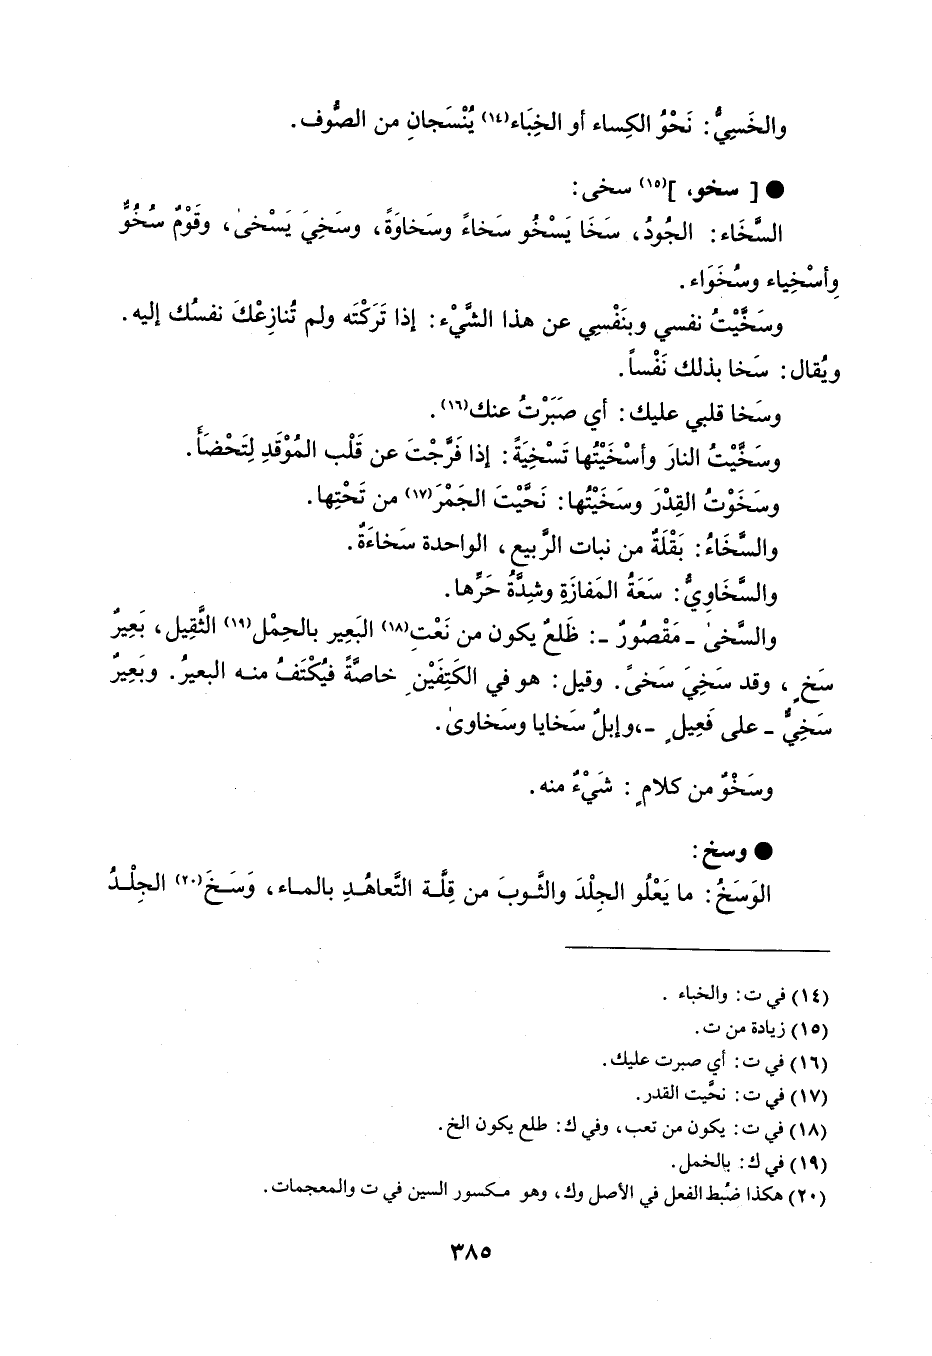 والخَسِيُّ: نَحْوُ الكِساء أو الخِبَاء(١٤) يُنْسَجانِ من الصُّوف.
● [ سخو، ](١٥) سخى:
السَّخَاء: الجُودُ، سَخَا يَسْخُو سَخاءً وسَخاوَةً، وسَخِيَ يَسْخىٰ، وقَوْمٌ سُخُوٌّ
وأسْخِياء وسُخَوَاء.
وسَخَّيْتُ نفسي وبنَفْسِي عن هذا الشَّيْء: إذا تَرَكْتَه ولم تُنازِعْكَ نفسُك إليه.
ويُقال: سَخا بذلك نَفْساً.
وسَخا قلبي عليك: أي صَبَرْتُ عنك(١٦).
وسَخَّيْتُ النارَ وأسْخَيْتُها تَسْخِيَةً: إذا فَرَّجْتَ عن قَلْب المُوْقَدِ لِتَحْضَأَ.
وسَخَوْتُ القِدْرَ وسَخَيْتُها: نَحَّيْتَ الجَمْرَ(١٧) من تَحْتِها.
والسَّخَاءُ: بَقْلَةٌ من نبات الرَّبيع، الواحدة سَخاءَةٌ.
والسَّخَاوِيُّ: سَعَةُ المَفازَةِ وشِدَّةُ حَرِّها.
والسَّخىٰ ـ مَقْصُورٌ ـ: ظَلعٌ يكون من نَعْتِ(١٨) البَعِير بالحِمْل(١٩) الثَّقِيل، بَعِيرٌ
سَخٍ، وقد سَخِيَ سَخىً. وقيل: هو في الكَتِفَيْنِ خاصَّةً فيُكْتَفُ منه البعيرُ. وبَعِيرٌ
سَخِيٌّ ـ على فَعِيلٍ ـ،وإبلٌ سَخايا وسَخاوىٰ.
وسَخْوٌ من كلامٍ: شَيْءٌ منه.
● وسخ:
الوَسَخُ: ما يَعْلُو الجِلْدَ والثَّوبَ من قِلَّة التَّعاهُدِ بالماء، وَسَخَ(٢٠) الجِلْدُ
(١٤) في ت: والخباء .
(١٥) زيادة من ت.
(١٦) في ت: أي صبرت عليك.
(١٧) في ت: نحَّيت القدر.
(١٨) في ت: يكون من تعب، وفي ك: طلع يكون الخ.
(١٩) في ك: بالخمل.
(٢٠) هكذا ضُبط الفعل في الأصل وك، وهو مكسور السين في ت والمعجمات.
٣٨٥